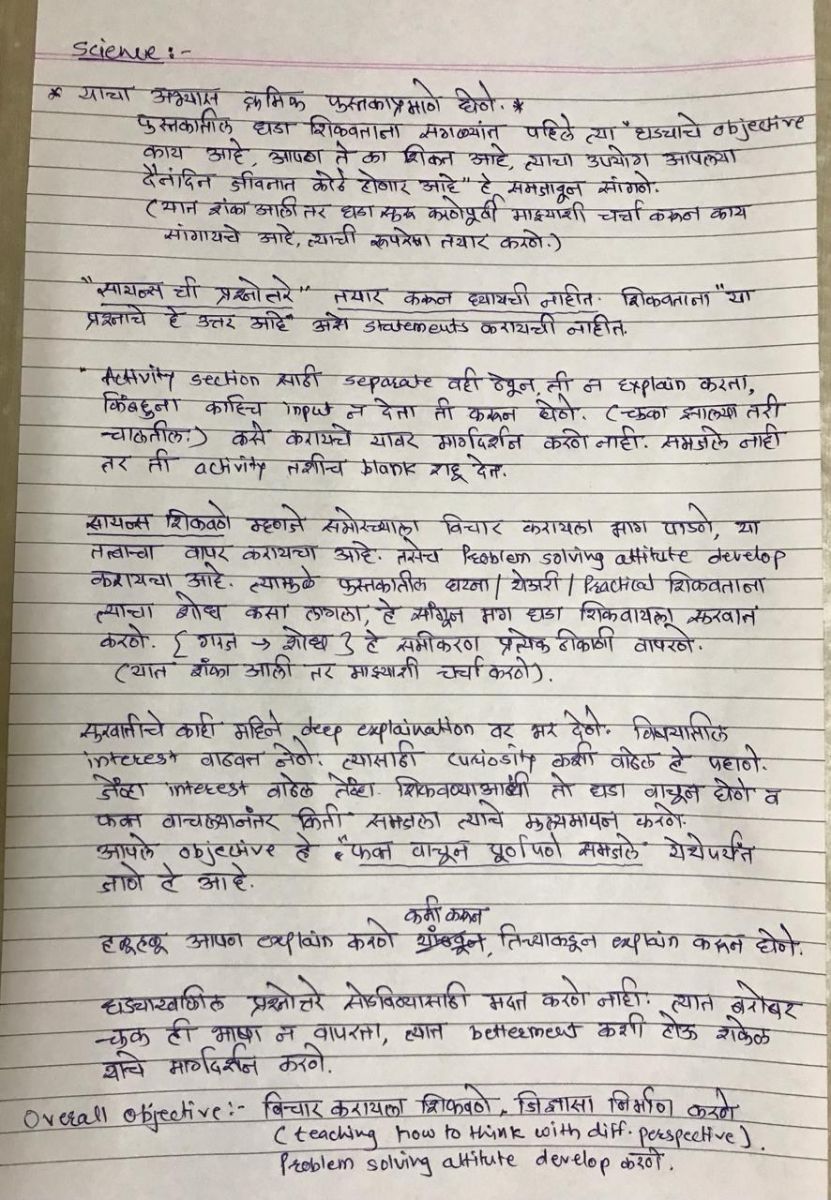 Science :-
* याचा अभ्यास क्रमिक पुस्तकाप्रमाणे घेणे. *
पुस्तकातील धडा शिकवताना सगळ्यांत पहिले त्या "धड्याचे objective
काय आहे, आपण ते का शिकत आहे, त्याचा उपयोग आपल्या
दैनंदिन जीवनात कोठे होणार आहे" हे समजावून सांगणे.
(यात शंका आली तर धडा सुरू करणेपूर्वी माझ्याशी चर्चा करून काय
सांगायचे आहे, त्याची रूपरेषा तयार करणे.)
"सायन्स ची प्रश्नोत्तरे" तयार करून द्यायची नाहीत. शिकवताना "या
प्रश्नाचे हे उत्तर आहे" असे statements करायची नाहीत.
" Activity section साठी separate वही ठेवून, ती न explain करता,
किंबहुना काहिच input न देता ती करून घेणे. (चुका झाल्या तरी
चालतील.) कसे करायचे यावर मार्गदर्शन करणे नाही. समजले नाही
तर ती activity तशीच blank राहू देत.
सायन्स शिकवणे म्हणजे समोरच्याला विचार करायला भाग पाडणे, या
तत्वाचा वापर करायचा आहे. तसेच Problem solving attitude develop
करायचा आहे. त्यामुळे पुस्तकातील घटना / थेअरी / Practical शिकवताना
त्याचा शोध कसा लागला, हे सांगून मग धडा शिकवायला सुरवात
करणे. { गरज → शोध } हे समीकरण प्रत्येक ठिकाणी वापरणे.
(यात शंका आली तर माझ्याशी चर्चा करणे).
सुरवातीचे काही महिने deep explaination वर भर देणे. विषयातील
interest वाढवत नेणे. त्यासाठी curiosity कशी वाढेल हे पहाणे.
जेंव्हा interest वाढेल तेंव्हा शिकवण्याआधी तो धडा वाचून घेणे व
फक्त वाचल्यानंतर किती समजला त्याचे मुल्यमापन करणे.
आपले objective हे "फक्त वाचून पूर्णपणे समजले" येथेपर्यंत
जाणे हे आहे.
कमी करून
हळूहळू आपण explain करणे थांबवून, तिच्याकडून explain करून घेणे.
धड्याखालील प्रश्नोत्तरे सोडविण्यासाठी मदत करणे नाही. त्यात बरोबर
चूक ही भाषा न वापरता, त्यात betterment कशी होऊ शकेल
याचे मार्गदर्शन करणे.
Overall objective:- विचार करायला शिकवणे, जिज्ञासा निर्माण करणे
(teaching how to think with diff. perspective).
Problem solving attitude develop करणे.